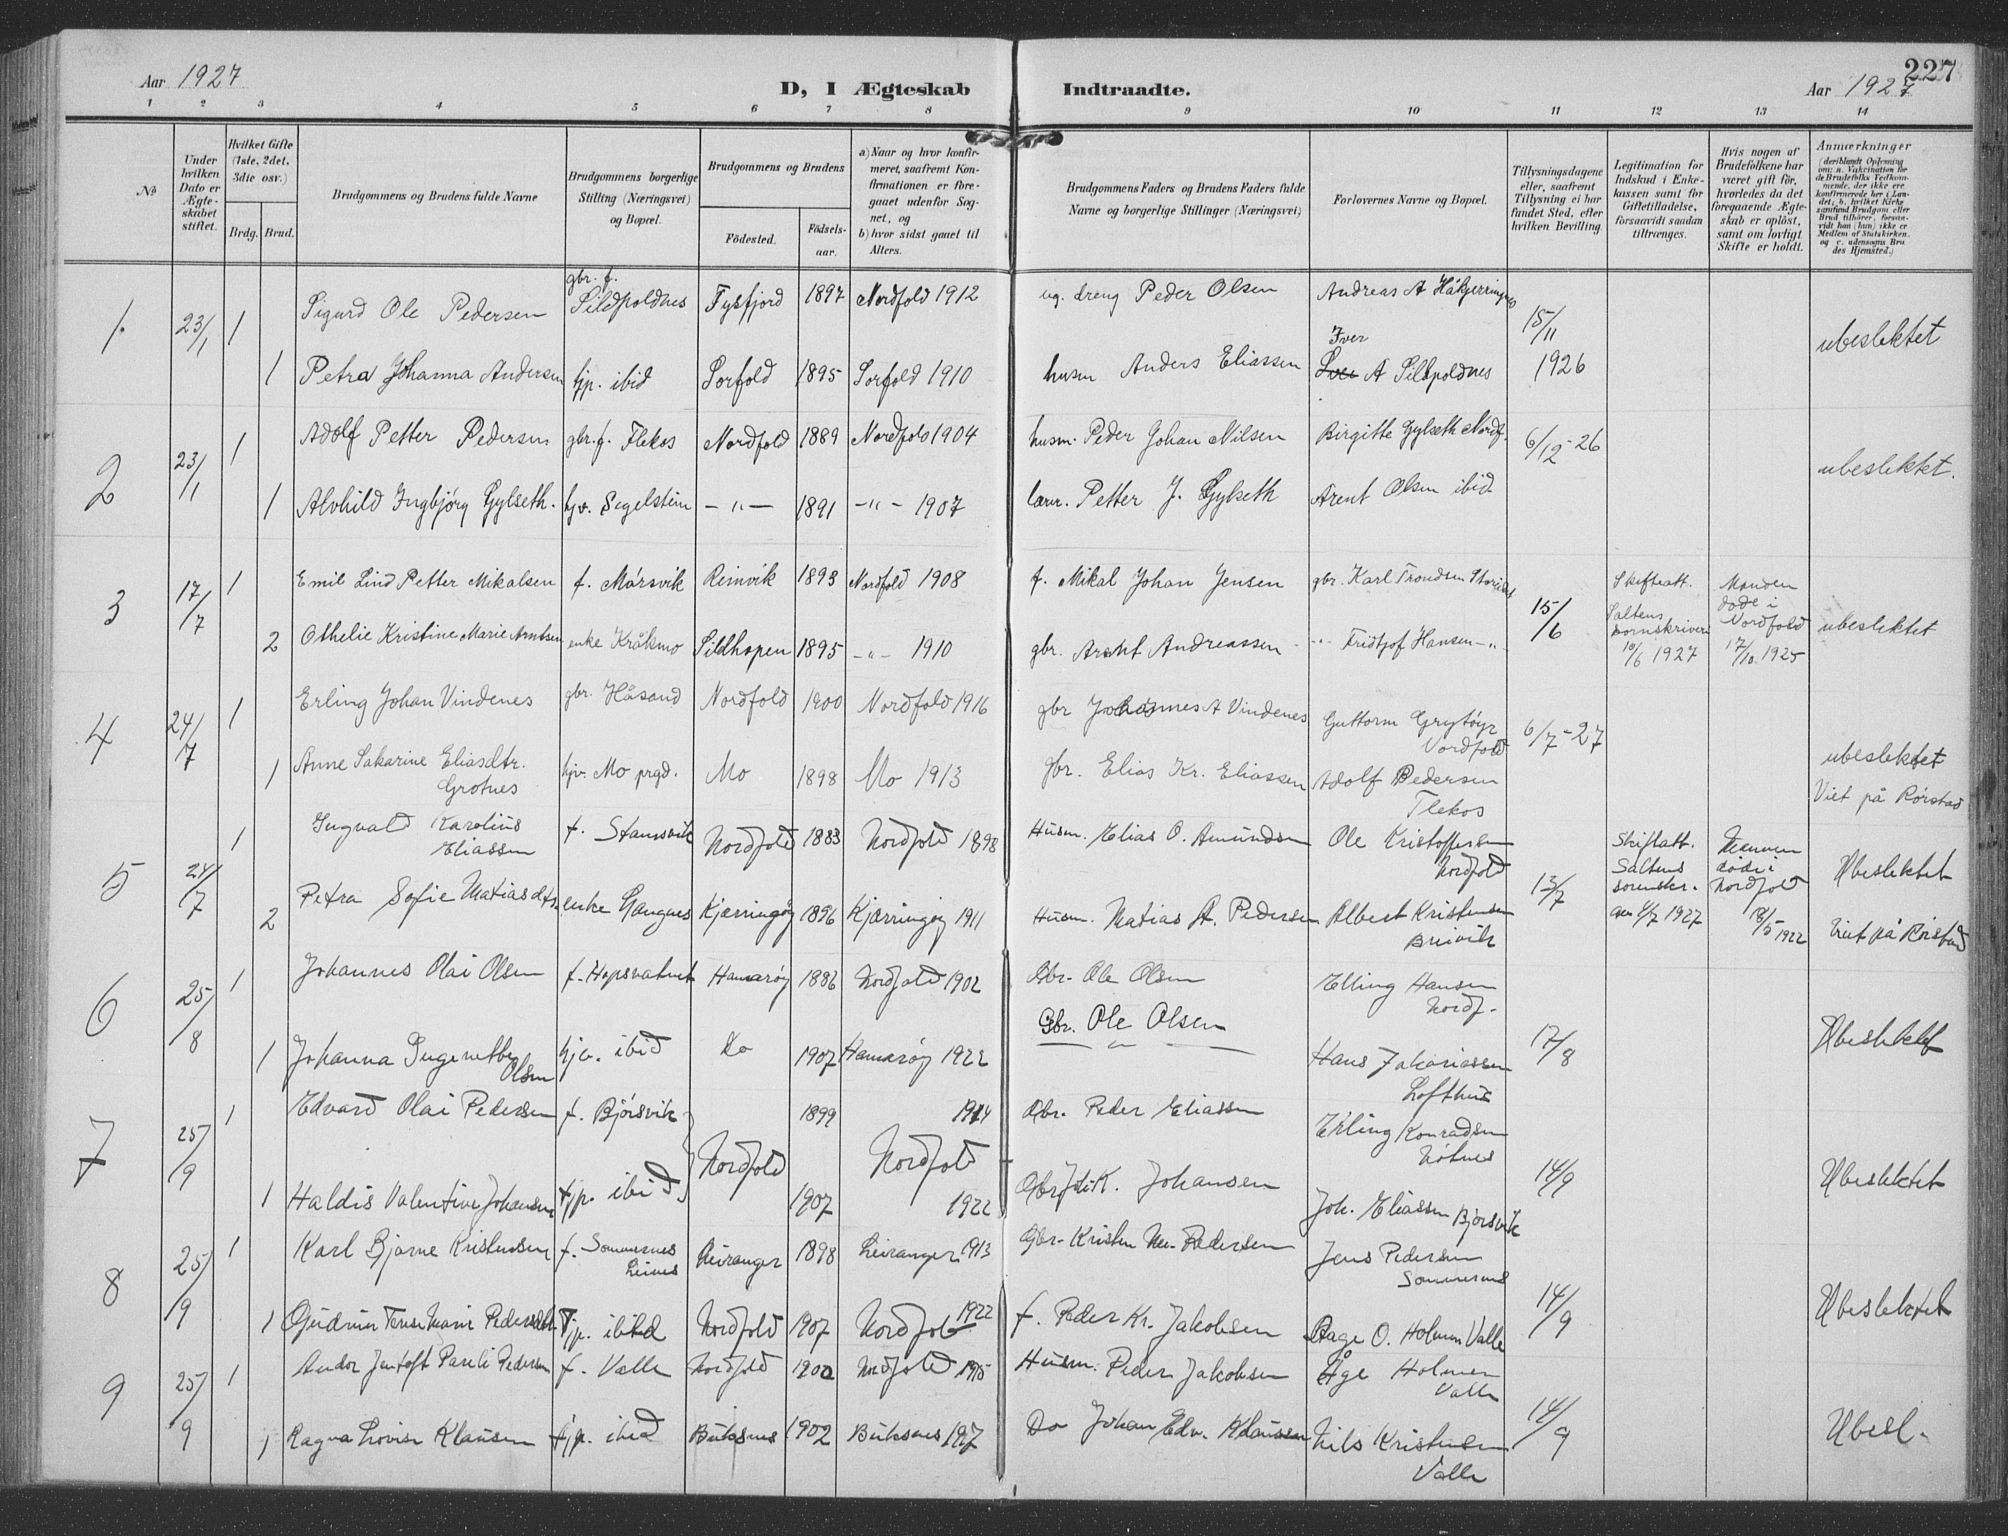 227
Aar 1927
D, I Ægteskab
Indtraadte.
Aar 1927
1 2 3 4 5 6 7 8 9 10 11 12 13 14
No
Under hvilken Dato er Ægteskabet stiftet.
Hvilket Gifte (1ste, 2det, 3die osv.)
Brdg. Brud.
Brudgommens og Brudens fulde Navne
Brudgommens borgerlige Stilling (Næringsvei) og Bopæl.
Brudgommens og Brudens
Födested. Födselsaar.
a) Naar og hvor konfirmeret, saafremt Konfirmationen er foregaaet udenfor Sognet, og
b) hvor sidst gaaet til Alters.
Brudgommens Faders og Brudens Faders fulde Navne og borgerlige Stillinger (Næringsvei)
Forlovernes Navne og Bopæl.
Tillysningsdagene eller, saafremt Tillysning ei har fundet Sted, efter hvilken Bevilling.
Legitimation for Indskud i Enkekassen samt for Giftetilladelse, forsaavidt saadan tiltrænges.
Hvis nogen af Brudefolkene har været gift för, hvorledes da det foregaaende Ægteskab er oplöst, samt om lovligt Skifte er holdt.
Anmærkninger
1. 23/1 1 Sigurd Ole Pedersen gbr. f. Sildpoldnes Tysfjord 1897 Nordfold 1912 ug. dreng Peder Olsen Andreas A Håkjerringnes 15/11 1926 ubeslektet
1 Petra Johanna Andersen hjp. ibid Sørfold 1895 Sørfold 1910 husm Anders Eliassen Iver A Sildpoldnes
2 23/1 1 Adolf Petter Pedersen gbr. f. Flekos Nordfold 1889 Nordfold 1904 husm. Peder Johan Nilsen Birgitte Gylseth Nordf. 6/12-26 ubeslektet.
1 Alvhild Ingbjørg Gylseth. hjv. Segelstein -"- 1891 -"- 1907 lærer. Petter J. Gylseth Arent Olsen ibid
3 17/7 1 Emil Lind Petter Mikalsen f. Mørsvik Reinvik 1893 Nordfold 1908 f. Mikal Johan Jensen gbr. Karl Trondsen 15/6 Skifteatt. Saltens sorenskriveri 10/6 1927 Manden døde i Nordfold 17/10. 1925 ubeslektet
2 Othelie Kristine Marie Arntsen enke Kråkmo Sildhopen 1895 -"- 1910 gbr. Arnt Andreassen -"- Fridtjof Hansen -"-
4 24/7 1 Erling Johan Vindenes gbr. Håsand Nordfold 1900 Nordfold 1916 gbr Johannes A Vindenes Guttorm Grytøyr Nordfold 6/7-27 ubeslektet
1 Anne Sakarine Eliasdtr. Grotnes hjv. Mo prgd. Mo 1898 Mo 1913 gbr. Elias Kr. Eliassen Adolf Pedersen Flekos Viet på Rørstad
5 24/7 1 Ingvald Karolius Eliassen f. Stamsvik Nordfold 1883 Nordfold 1898 Husm. Elias O. Amundsen Ole Kristoffersen Nordfold 13/7 Skiftatt. Saltens sorenskr. 4/7 1927 Mannen døde i Nordfold 18/5 1922 Ubeslektet
2 Petra Sofie Matiasdtr enke Gangnes Kjærringøy 1896 Kjærringøy 1911 Husm. Matias A. Pedersen Albert Kristensen Brivik Viet på Rørstad
6 25/8 1 Johannes Olai Olsen f. Hopsvatnet Hamarøy 1886 Nordfold 1902 Gbr. Ole Olsen Elling Hansen Nordf. 17/8 Ubeslektet
1 Johanna Ingenetbe Olsen hjv. ibid Do 1907 Hamarøy 1922 Gbr. Ole Olsen Hans Jakariassen Lofthus
7 25/9 1 Edvard Olai Pedersen f. Bjørsvik Nordfold 1899 1914 Nordfold Gbr. Peder Eliassen Erling Konradsen Nøtnes 14/9 Ubeslektet
1 Haldis Valentine Johansen tjp. ibid 1907 1922 Gbr. K. Johansen Joh. Eliassen Bjørsvik
8 25/9 1 Karl Bjarne Kristensen f. Sommernes Leines Leiranger 1898 Leiranger 1913 Gbr. Kristen Pedersen Jens Pedersen Sommernes 14/9 Ubeslektet
1 Gudrun Pedersdtr tjp. ibid Nordfold 1907 Nordfold 1922 f. Peder Kr. Jakobsen Aage O. Holmen Valle
9 25/9 1 Andor Jentoft Pareli Pedersen f. Valle Nordfold 1900 Nordfold 1915 Husm. Peder Jakobsen Åge Holmen Valle 14/9 Ubesl.
1 Ragna Lovise Klausen tjp. ibid Buksnes 1902 Buksnes 1917 Do Johan Edv. Klaussen Nils Kristensen Valle